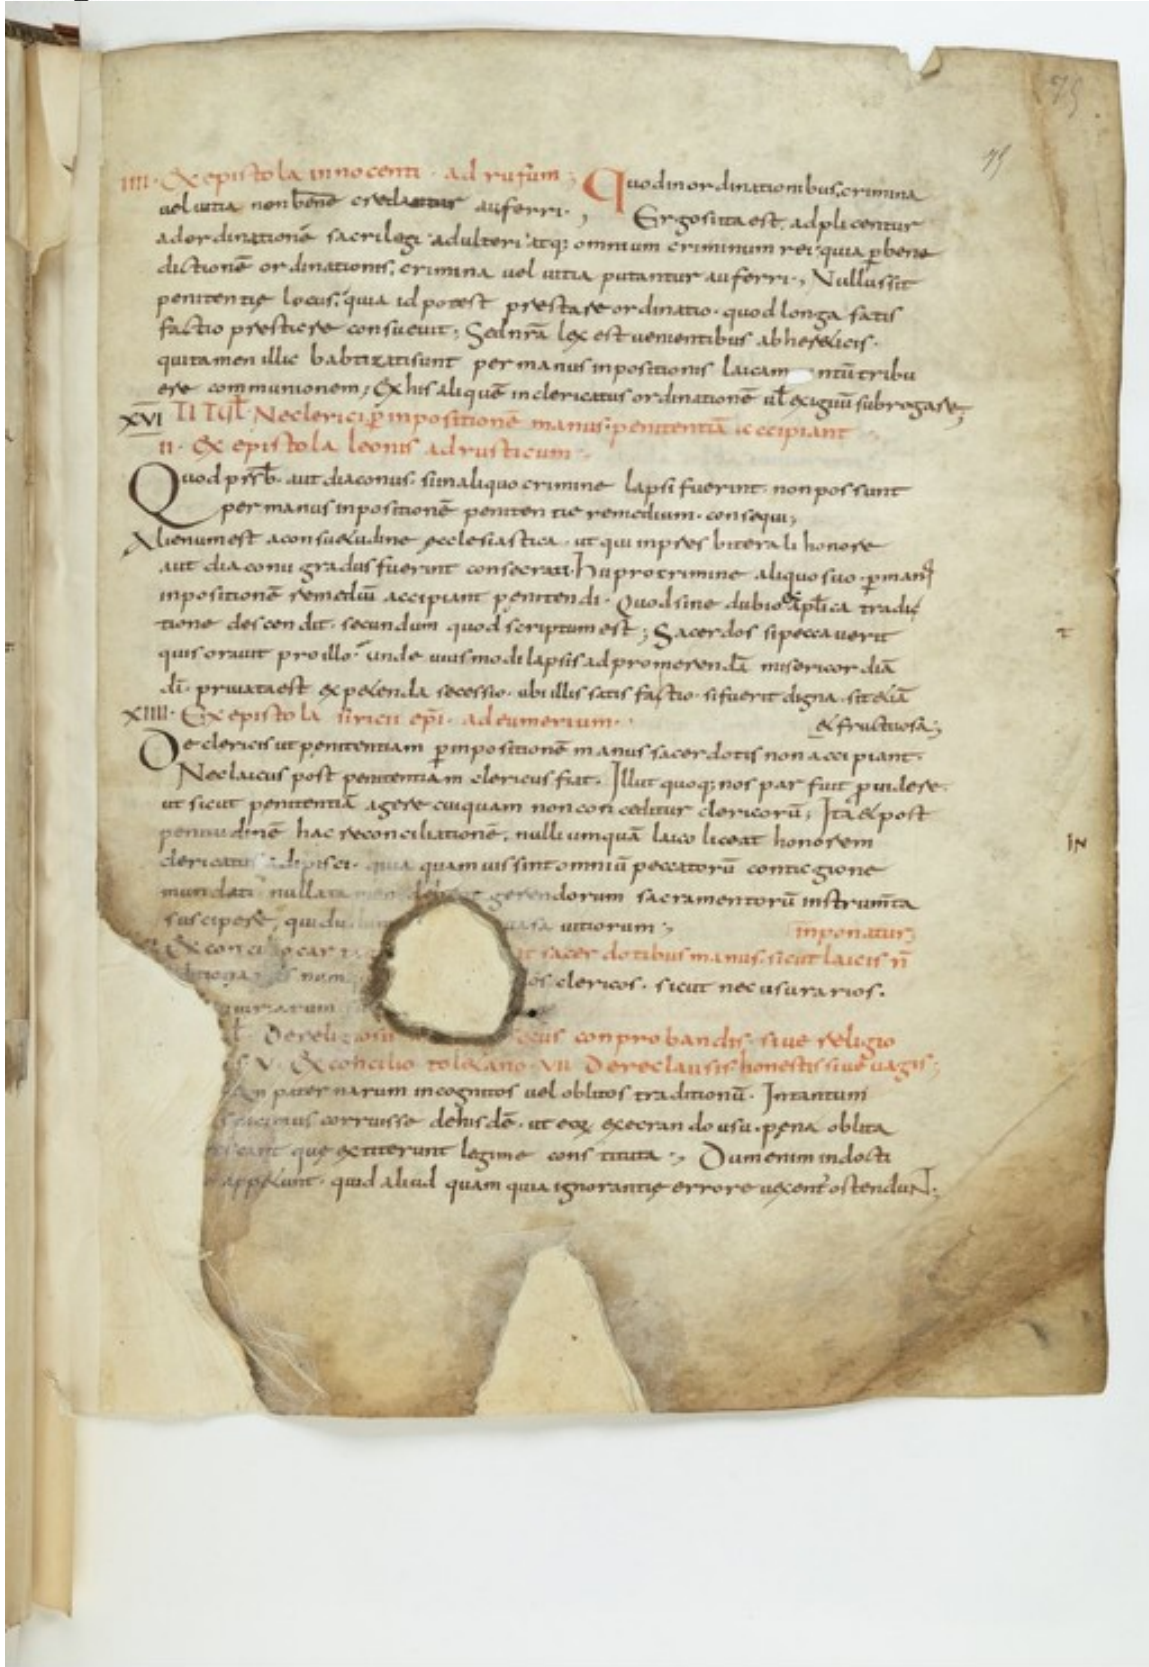 75
75
IIII· Ex epistola innocenti· ad rufum; Quod in ordinationibus, crimina
vel vitia non bene credantur auferri·, Ergo si ita est, adplicentur
ad ordinationē sacrilegi adulteri atq; omnium criminum rei· quia p bene
dictionē ordinationis, crimina vel vitia putantur auferri·, Nullus sit
penitentię locus, quia id potest prestare ordinatio· quod longa satis
factio prestare consuevit; Sed nrā lex est venientibus ab hereticis·
qui tamen illic babtizati sunt per manus inpositionis laicam ntū tribu
ere communionem; Ex his aliquē in clericatus ordinationē vel exiguū subrogare;
XVI TITUL· Ne clerici p inpositionē manus· penitentiā accipiant
II· Ex epistola leonis ad rusticum·
Quod prb· aut diaconus· si in aliquo crimine lapsi fuerint· non possunt
per manus inpositionē penitentie remedium· consequi;
Alienum est a consuetudine ecclesiastica· ut qui in presbiterali honore
aut diaconii gradus fuerint consecrati· hii pro crimine aliquo suo· p man
inpositionē remediū accipiant penitendi· Quod sine dubio ex aplica tradi
tione descendit· secundum quod scriptum est; Sacerdos si peccaverit
quis oravit pro illo· unde uiusmodi lapsis ad promerendā misericordiā
di· privata est expetenda secessio· ubi illis satisfactio· si fuerit digna· sit etiā
XIIII· Ex epistola siricii epi· ad eumerium· et fructuosa;
De clericis ut penitentiam p inpositionē manus sacerdotis non accipiant·
Nec laicus post penitentiam clericus fiat· Illut quoq; nos par fuit p videre·
ut sicut penitentiā agere cuiquam non conceditur clericorū; Ita et post
penitudinē hac reconciliationē, nulli umquā laico liceat honorem
clericatus adipisci· quia quamvis sint omniū peccatorū contagione
mundati nulla tamen debent gerendorum sacramentorū instrumta
suscipere, qui du vasa vitiorum;
inponatur;
Ex concilio car t sacerdotibus manus· sicut laicis n
nom os clericos· sicut nec usurarios·
iurarum
l· De religiosis ocus conprobandis· sive religio
s· V· Ex concilio toletano· VII De reclausis· honestis sive vagis;
paternarum incognitos vel oblitos traditionū· In tantum
corruisse dehisdē· ut eorum execrando usu· pena oblita
que extiterunt legime constituta·, Dum enim indocti
appetunt· quid aliud quam quia ignorantię errore vexent ostenduNT;
T
IN